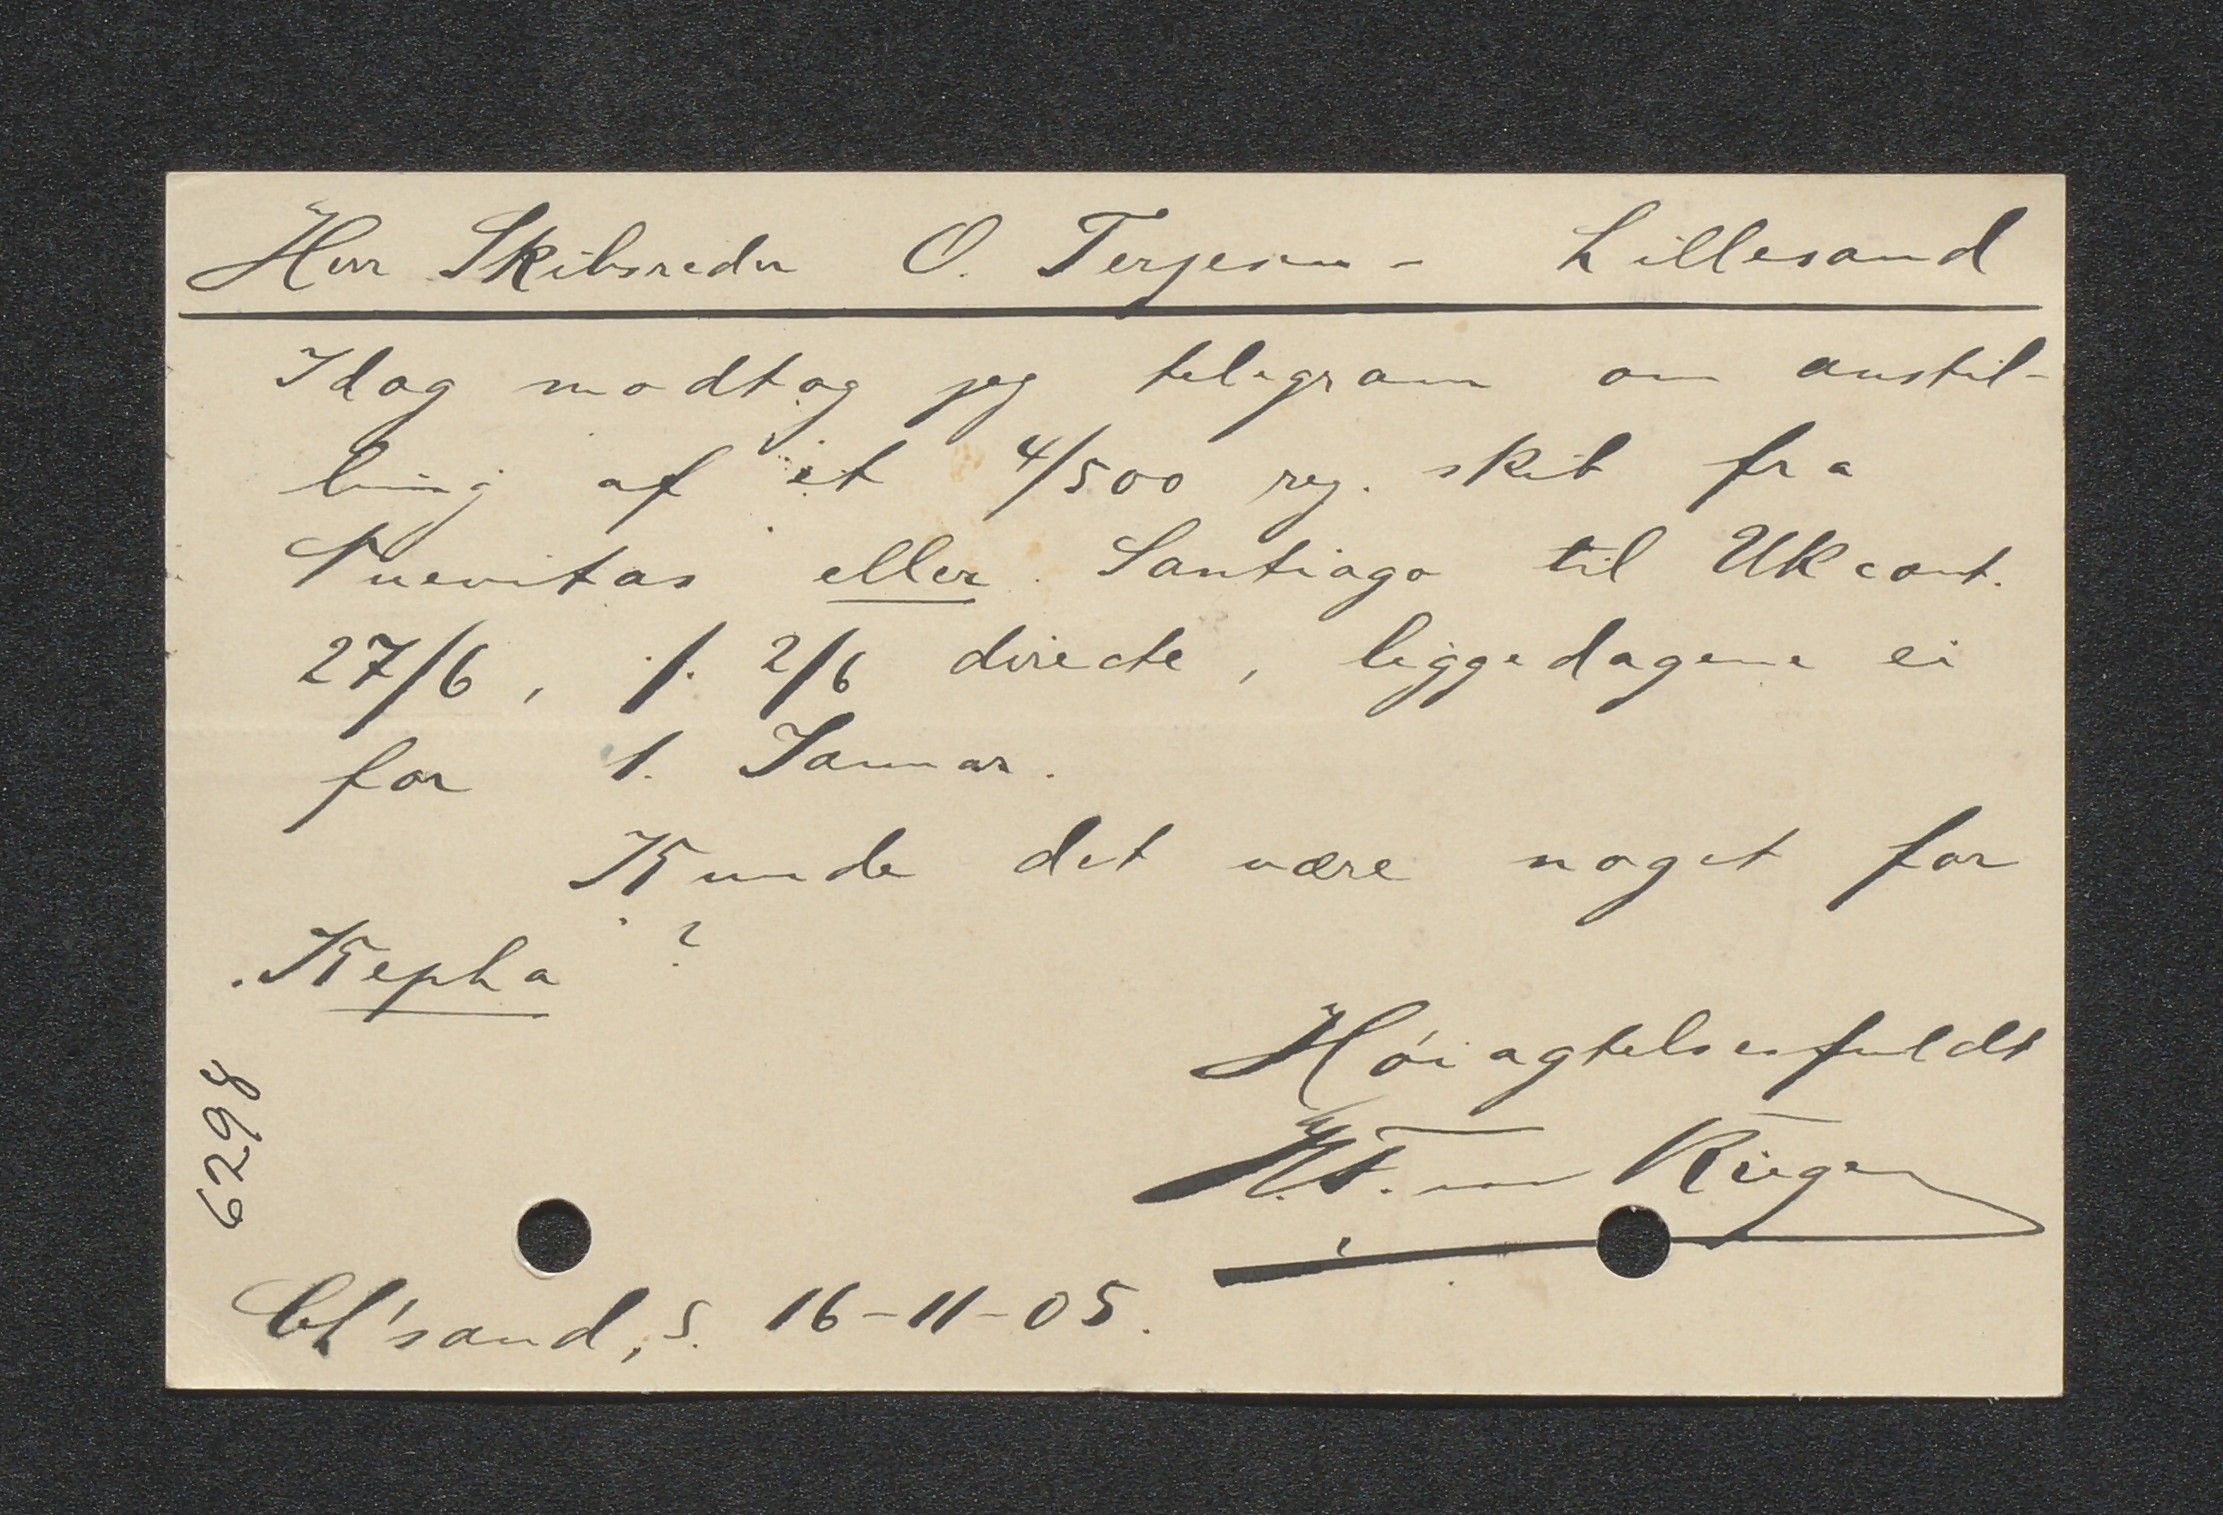 Herr Skibsreder O. Terjesen - Lillesand
Idag modtog jeg telegram om anstil-
ling af et 4/500 reg. skib fra
Nuevitas eller Santiago til UK cont.
27/6, ÷ 2/6 directe, liggedagene ei
før 1. Januar.
Kunde det være noget for
Kepha?
Høiagtelsesfuldt
Ch'sand, S. 16-11-05.
6298